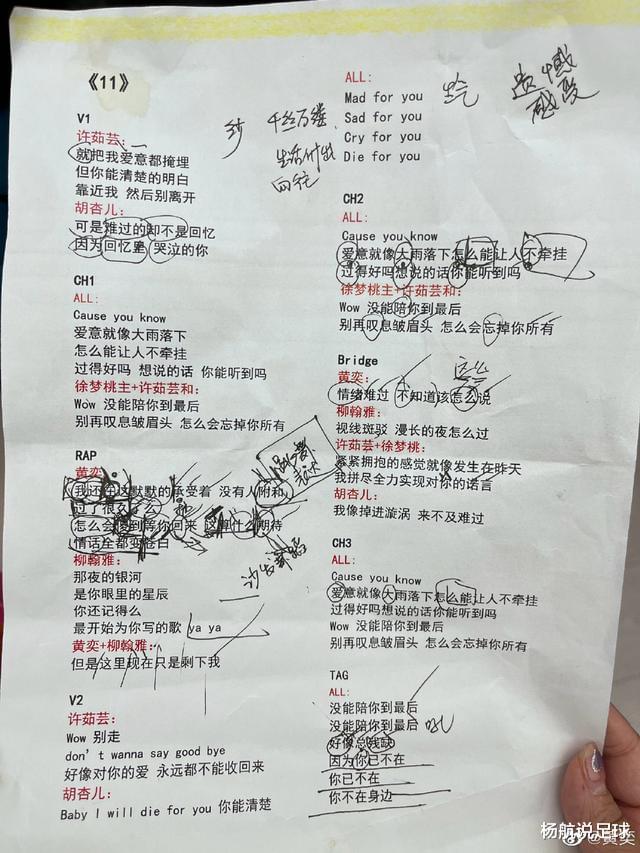 《11》
V1
许茹芸：
就把我爱意都掩埋
但你能清楚的明白
靠近我 然后别离开
胡杏儿：
可是难过的却不是回忆
因为回忆里 哭泣的你
千丝万缕
CH1
ALL:
Cause you know
爱意就像大雨落下
怎么能让人不牵挂
过得好吗 想说的话 你能听到吗
徐梦桃主+许茹芸和：
Wow 没能陪你到最后
别再叹息皱眉头 怎么会忘掉你所有
RAP
黄奕：
我还在这默默的承受着 没有人附和
过了很久了么
怎么会傻到等你回来 这算什么期待
情话全都变苍白
柳翰雅：
那夜的银河
是你眼里的星辰
你还记得么
最开始为你写的歌 ya ya
黄奕+柳翰雅：
但是这里现在只是剩下我
V2
许茹芸：
Wow 别走
don't wanna say good bye
好像对你的爱 永远都不能收回来
胡杏儿：
Baby I will die for you 你能清楚
ALL:
Mad for you
Sad for you
Cry for you
Die for you
生气
遗憾
感受
CH2
ALL:
Cause you know
爱意就像大雨落下怎么能让人不牵挂
过得好吗想说的话你能听到吗
徐梦桃主+许茹芸和：
Wow 没能陪你到最后
别再叹息皱眉头 怎么会忘掉你所有
Bridge
黄奕：
情绪难过 不知道该怎么说
柳翰雅：
视线斑驳 漫长的夜怎么过
许茹芸+徐梦桃：
紧紧拥抱的感觉就像发生在昨天
我拼尽全力实现对你的诺言
胡杏儿：
我像掉进漩涡 来不及难过
CH3
ALL:
Cause you know
爱意就像大雨落下怎么能让人不牵挂
过得好吗想说的话你能听到吗
Wow 没能陪你到最后
别再叹息皱眉头 怎么会忘掉你所有
TAG
ALL:
没能陪你到最后
没能陪你到最后
好像总残缺
因为你已不在
你已不在
你不在身边
杨航说足球
@黄奕